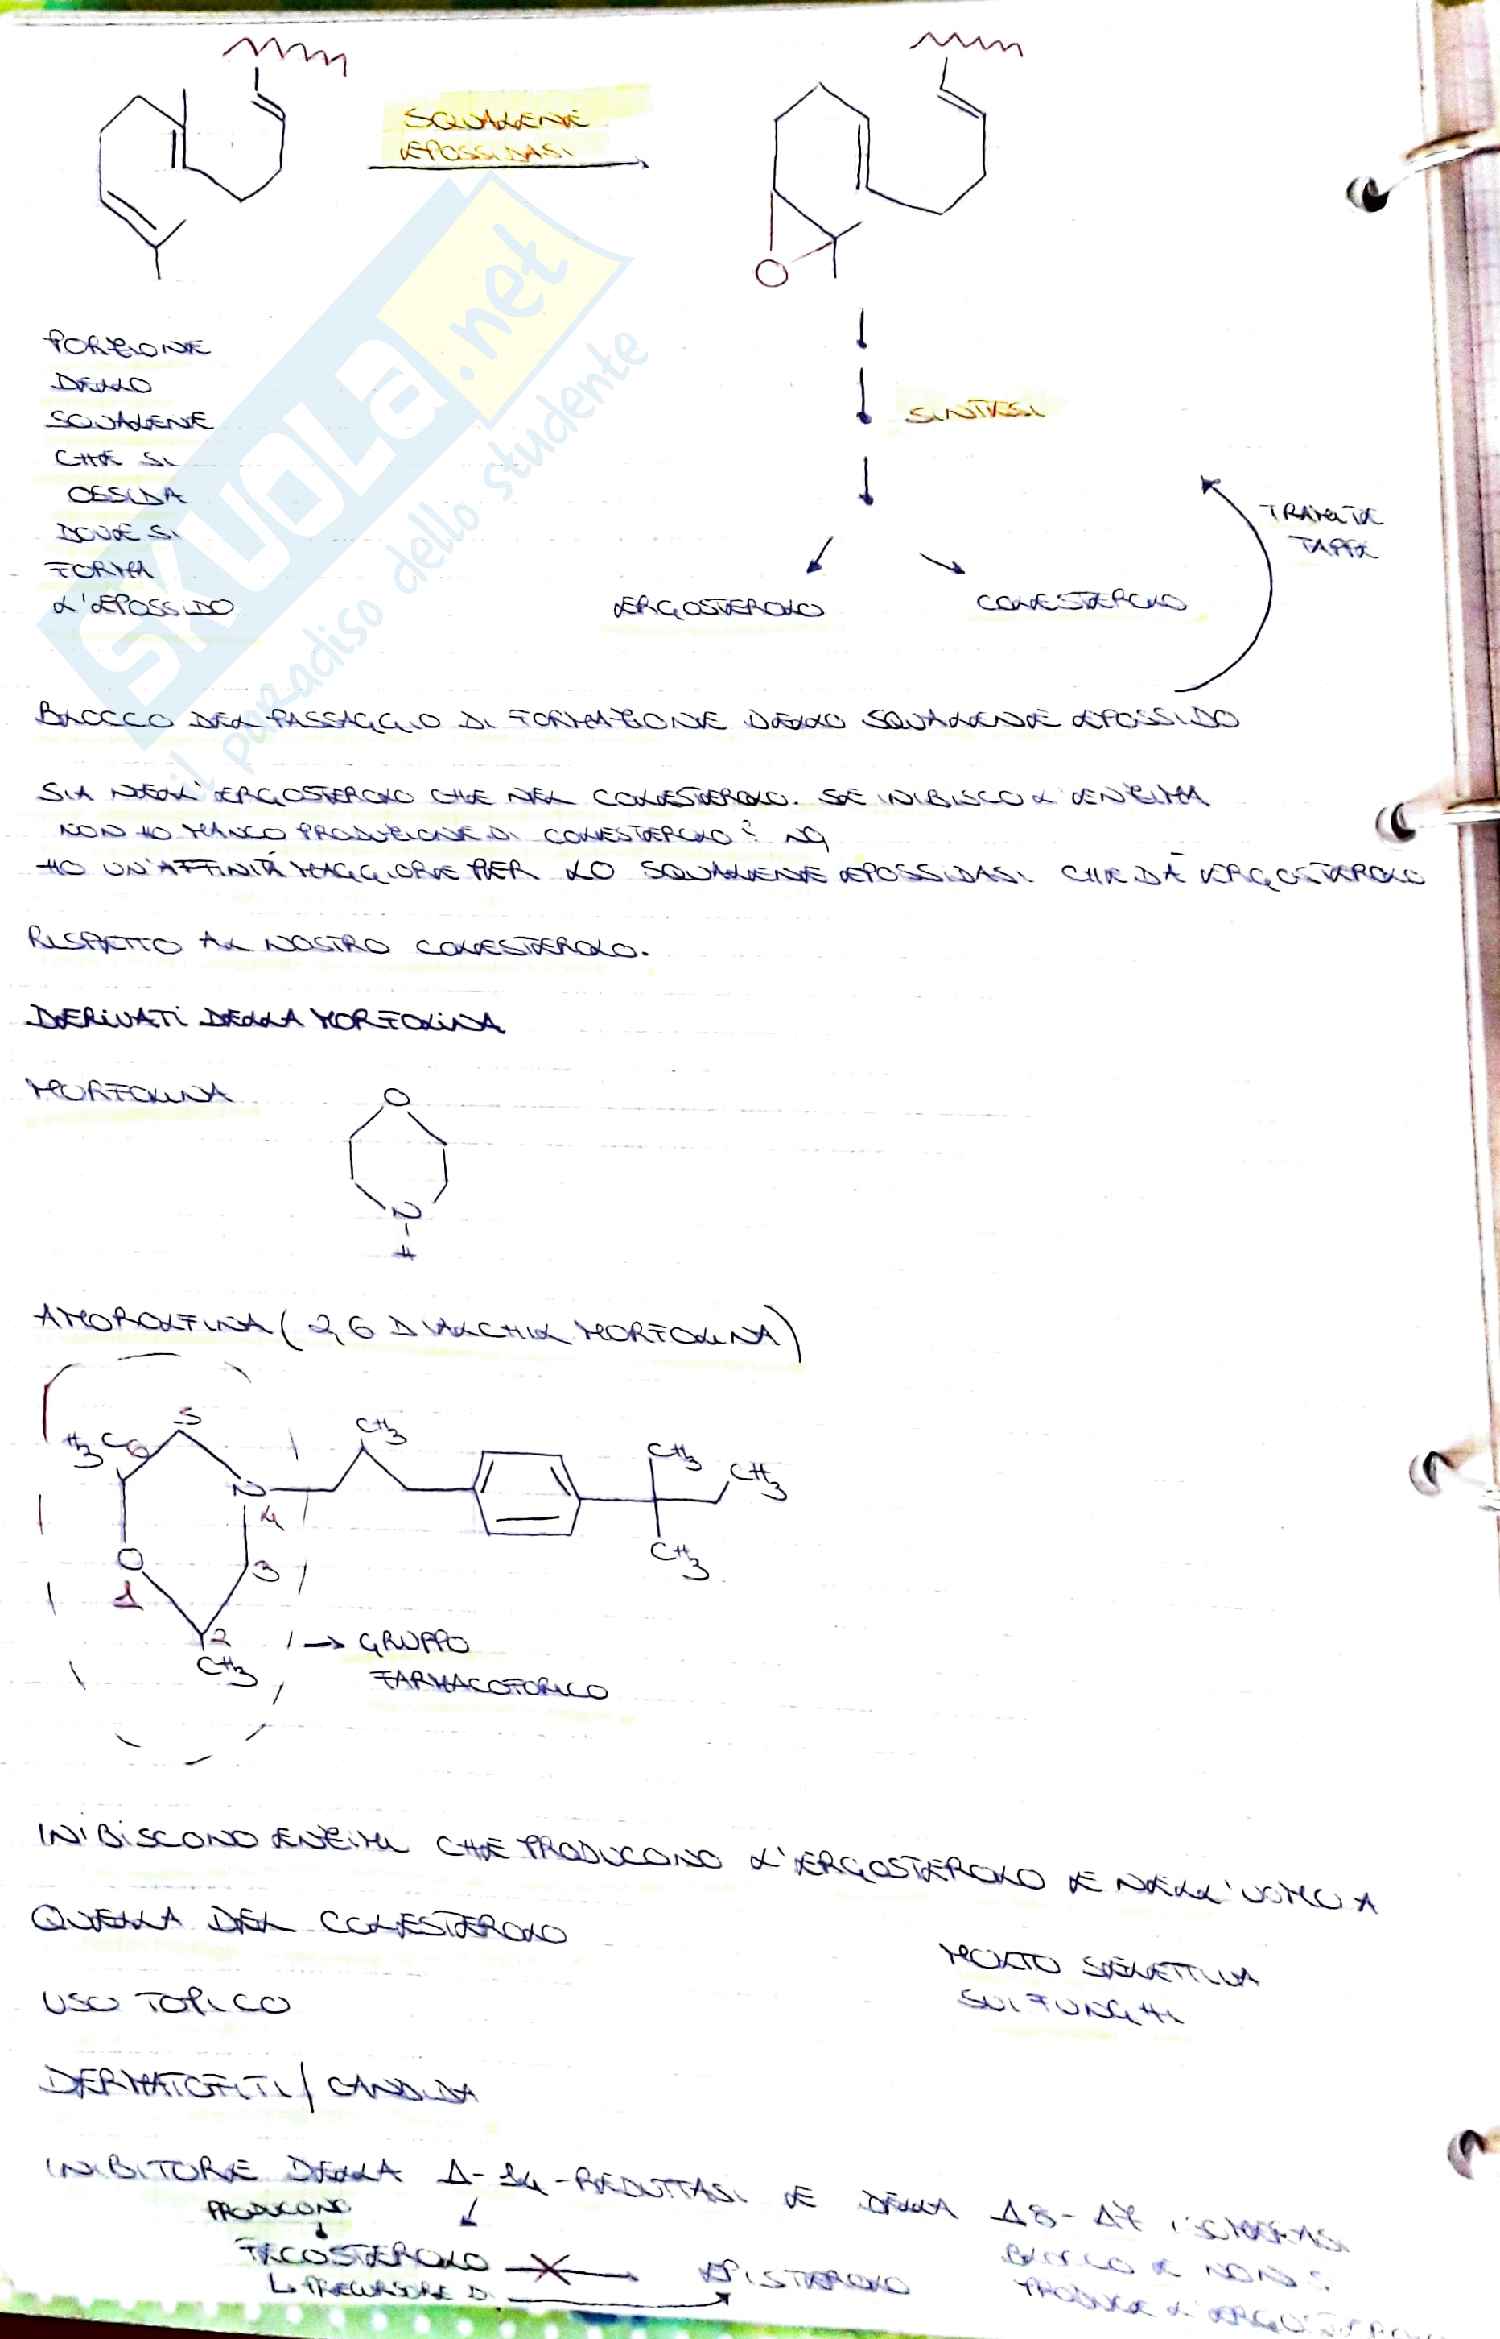 SQUALENE
EPOSSIDASI
O
PORZIONE
DELLO
SQUALENE
CHE SI
OSSIDA
DOVE SI
FORMA
L'EPOSSIDO
SINTESI
TRAMITE
TAPPE
ERGOSTEROLO
COLESTEROLO
SKUOLA.net
il paradiso dello studente
BLOCCO DEL PASSAGGIO DI FORMAZIONE DELLO SQUALENE EPOSSIDO
SIA NELL'ERGOSTEROLO CHE NEL COLESTEROLO. SE INIBISCO L'ENZIMA
NON HO MANCO PRODUZIONE DI COLESTEROLO? NO
HO UN'AFFINITÀ MAGGIORE PER LO SQUALENE EPOSSIDASI CHE DÀ ERGOSTEROLO
RISPETTO AL NOSTRO COLESTEROLO.
DERIVATI DELLA MORFOLINA
MORFOLINA
O
N
H
AMOROLFINA (2,6 DIALCHIL MORFOLINA)
5
H3C 6
CH3
CH3
CH3
N
4
O
1
3
CH3
2
CH3
→ GRUPPO
FARMACOFORICO
INIBISCONO ENZIMI CHE PRODUCONO L'ERGOSTEROLO E NELL'UOMO A
QUELLA DEL COLESTEROLO
MOLTO SELETTIVA
SUI FUNGHI
USO TOPICO
DERMATOFITI/CANDIDA
INIBITORE DELLA Δ-14-REDUTTASI E DELLA Δ8-Δ7 ISOMERASI
PRODUCONO
FECOSTEROLO
EPISTEROLO
BLOCCO E NON SI
L> PRECURSORE DI
PRODUCE L'ERGOSTEROLO